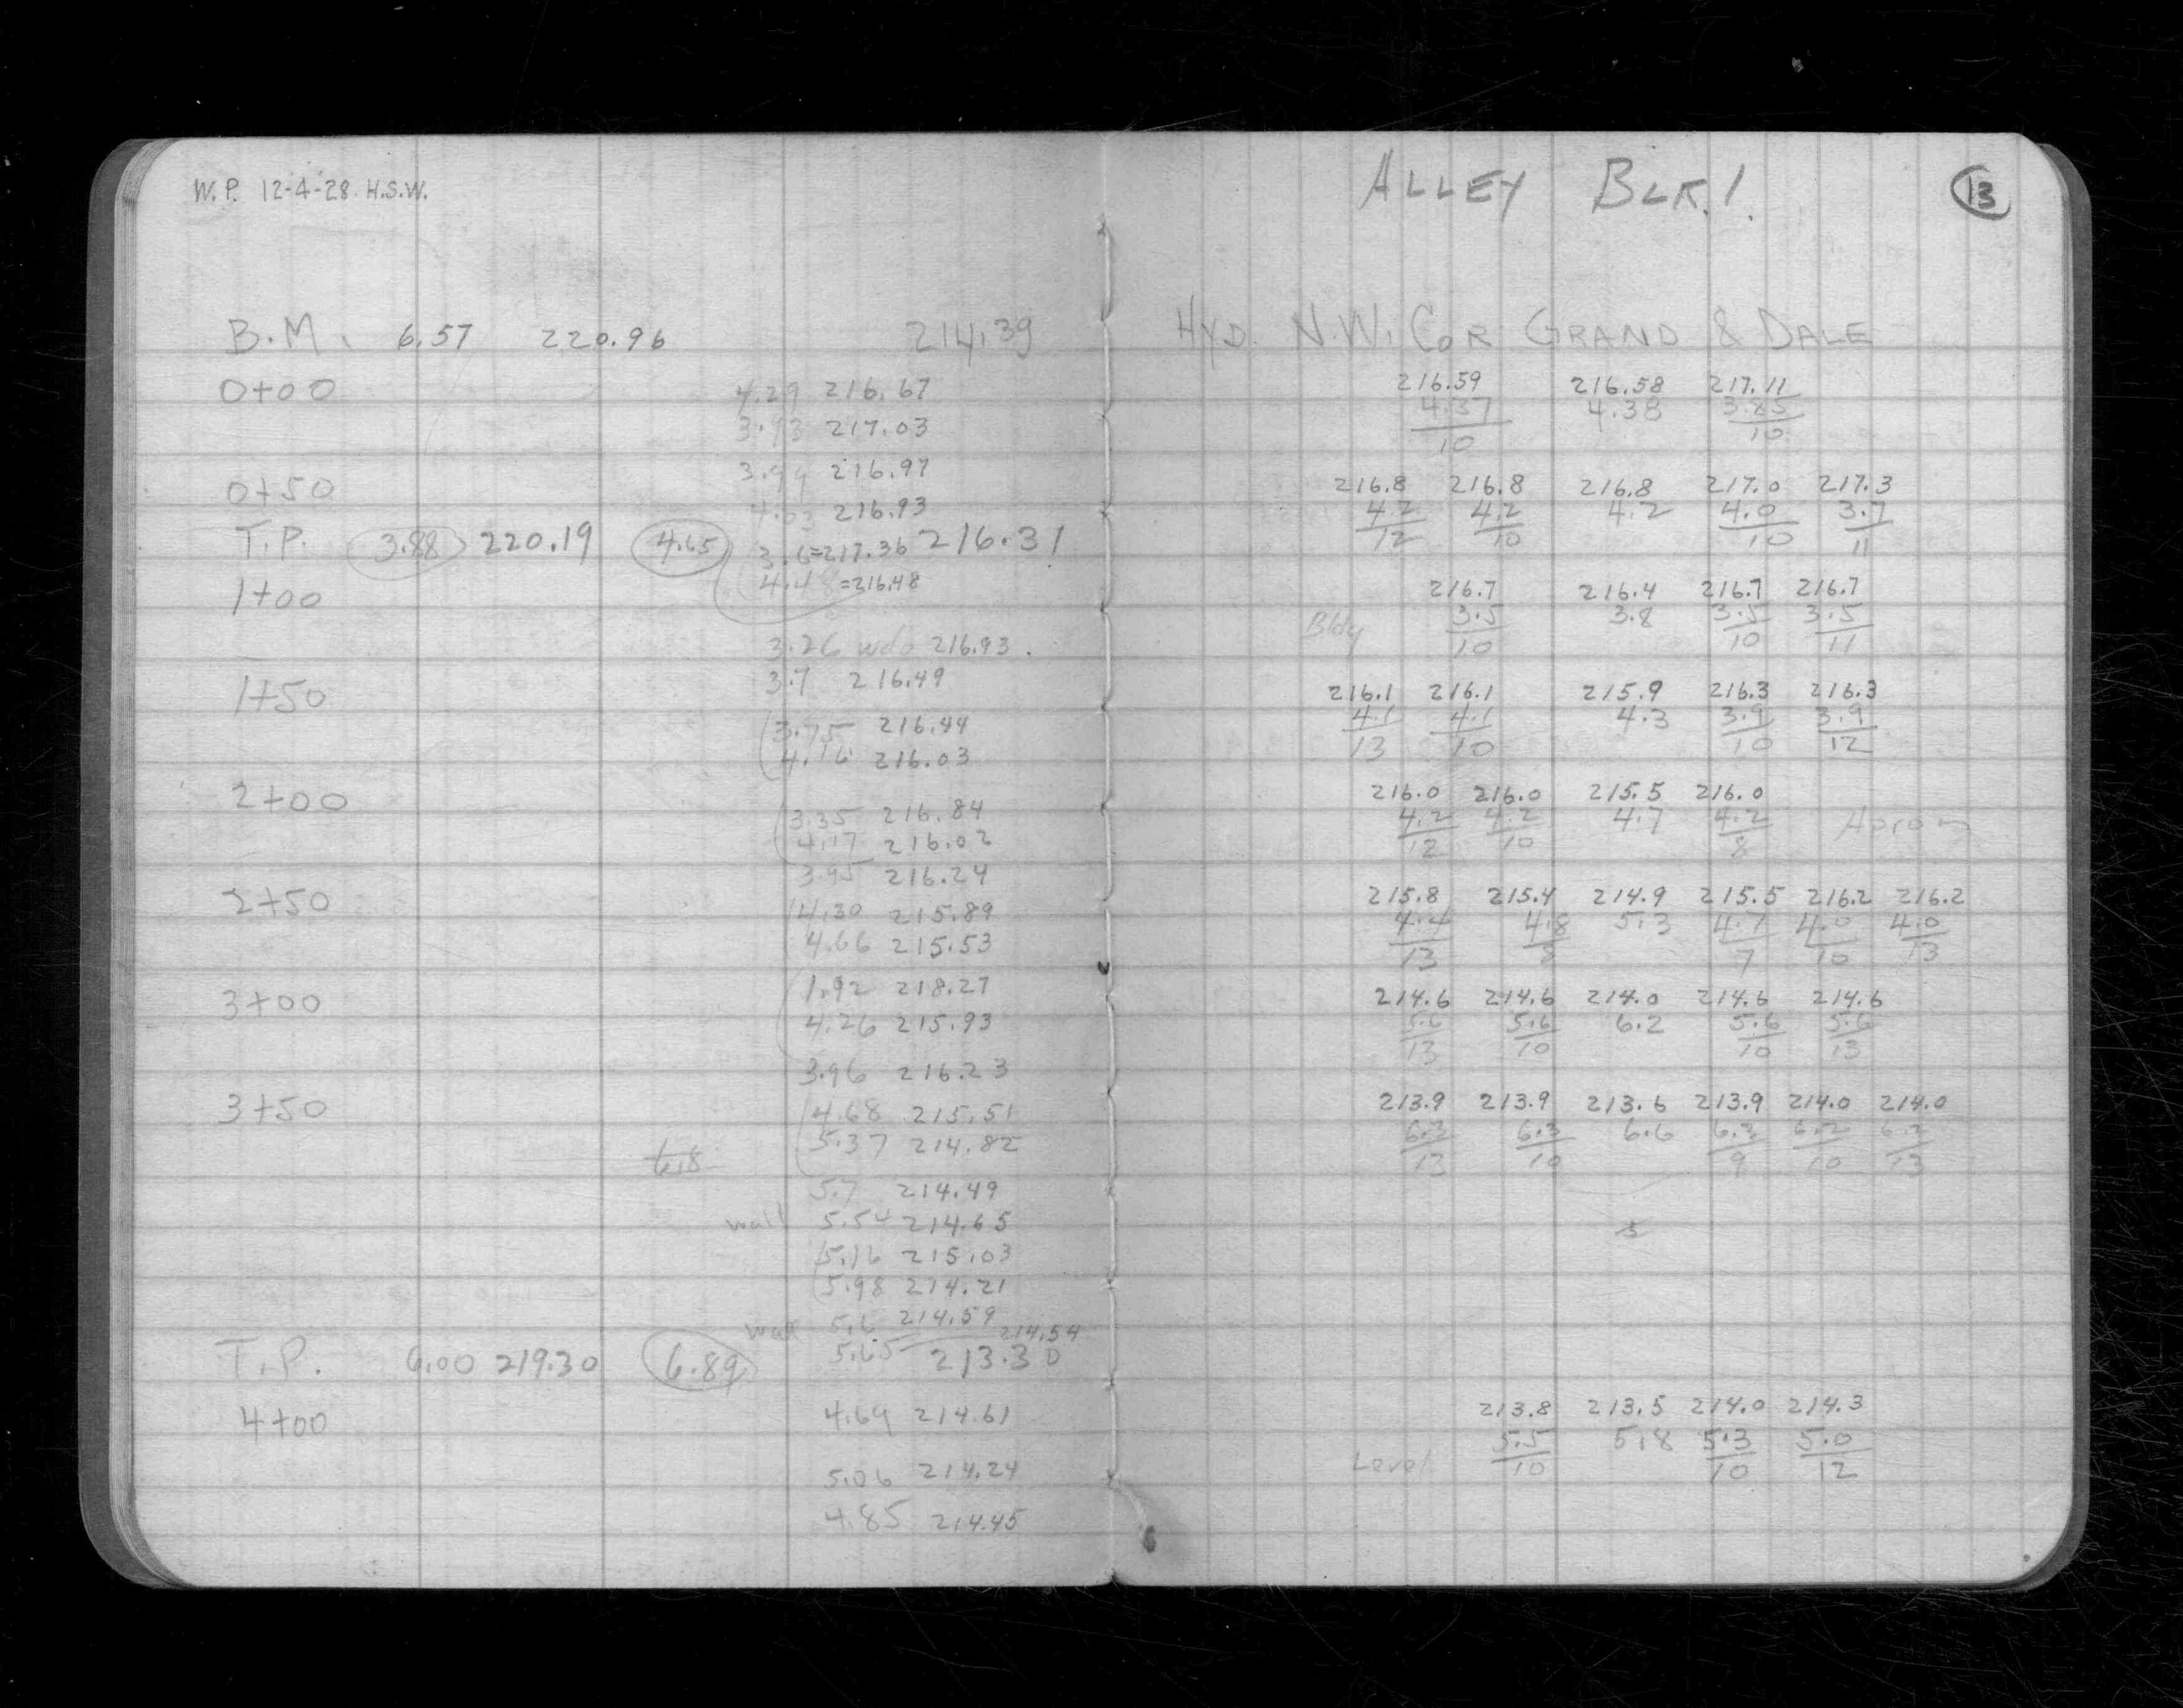 W.P. 12-4-28. H.S.W.
B.M. 6.57 220.96 214.39
0+00 4.29 216.67
3.93 217.03
3.99 216.97
0+50
4.03 216.93
T.P. 3.88 220.19 4.65 3.6=217.36 216.31
4.48=216.48
1+00
3.26 216.93.
3.7 216.49
1+50
3.75 216.44
4.16 216.03
2+00
3.35 216.84
4.17 216.02
3.95 216.24
2+50
4.30 215.89
4.66 215.53
1.92 218.27
3+00
4.26 215.93
3.96 216.23
3+50 4.68 215.51
5.37 214.82
6.8
5.7 214.49
wall 5.54 214.65
5.16 215.03
5.98 214.21
wall 5.6 214.59
214.54
T.P. 6.00 219.30 6.89 5.65 213.30
4+00 4.69 214.61
5.06 214.24
4.85 214.45
ALLEY BLK.1.
13
HYD. N.W. COR GRAND & DALE
216.59 216.58 217.11
4.37 4.38 3.85
10 10
216.8 216.8 216.8 217.0 217.3
4.2 4.2 4.2 4.0 3.7
12 10 10 11
216.7 216.4 216.7 216.7
Bldg 3.5 3.8 3.5 3.5
10 10 11
216.1 216.1 215.9 216.3 216.3
4.1 4.1 4.3 3.9 3.9
13 10 10 12
216.0 216.0 215.5 216.0
4.2 4.2 4.7 4.2 Apron
12 10 8
215.8 215.4 214.9 215.5 216.2 216.2
4.4 4.8 5.3 4.7 4.0 4.0
13 8 7 10 13
214.6 214.6 214.0 214.6 214.6
5.6 5.6 6.2 5.6 5.6
13 10 10 13
213.9 213.9 213.6 213.9 214.0 214.0
6.3 6.3 6.6 6.3 6.2 6.2
13 10 9 10 13
213.8 213.5 214.0 214.3
5.5 5.8 5.3 5.0
Level 10 10 12